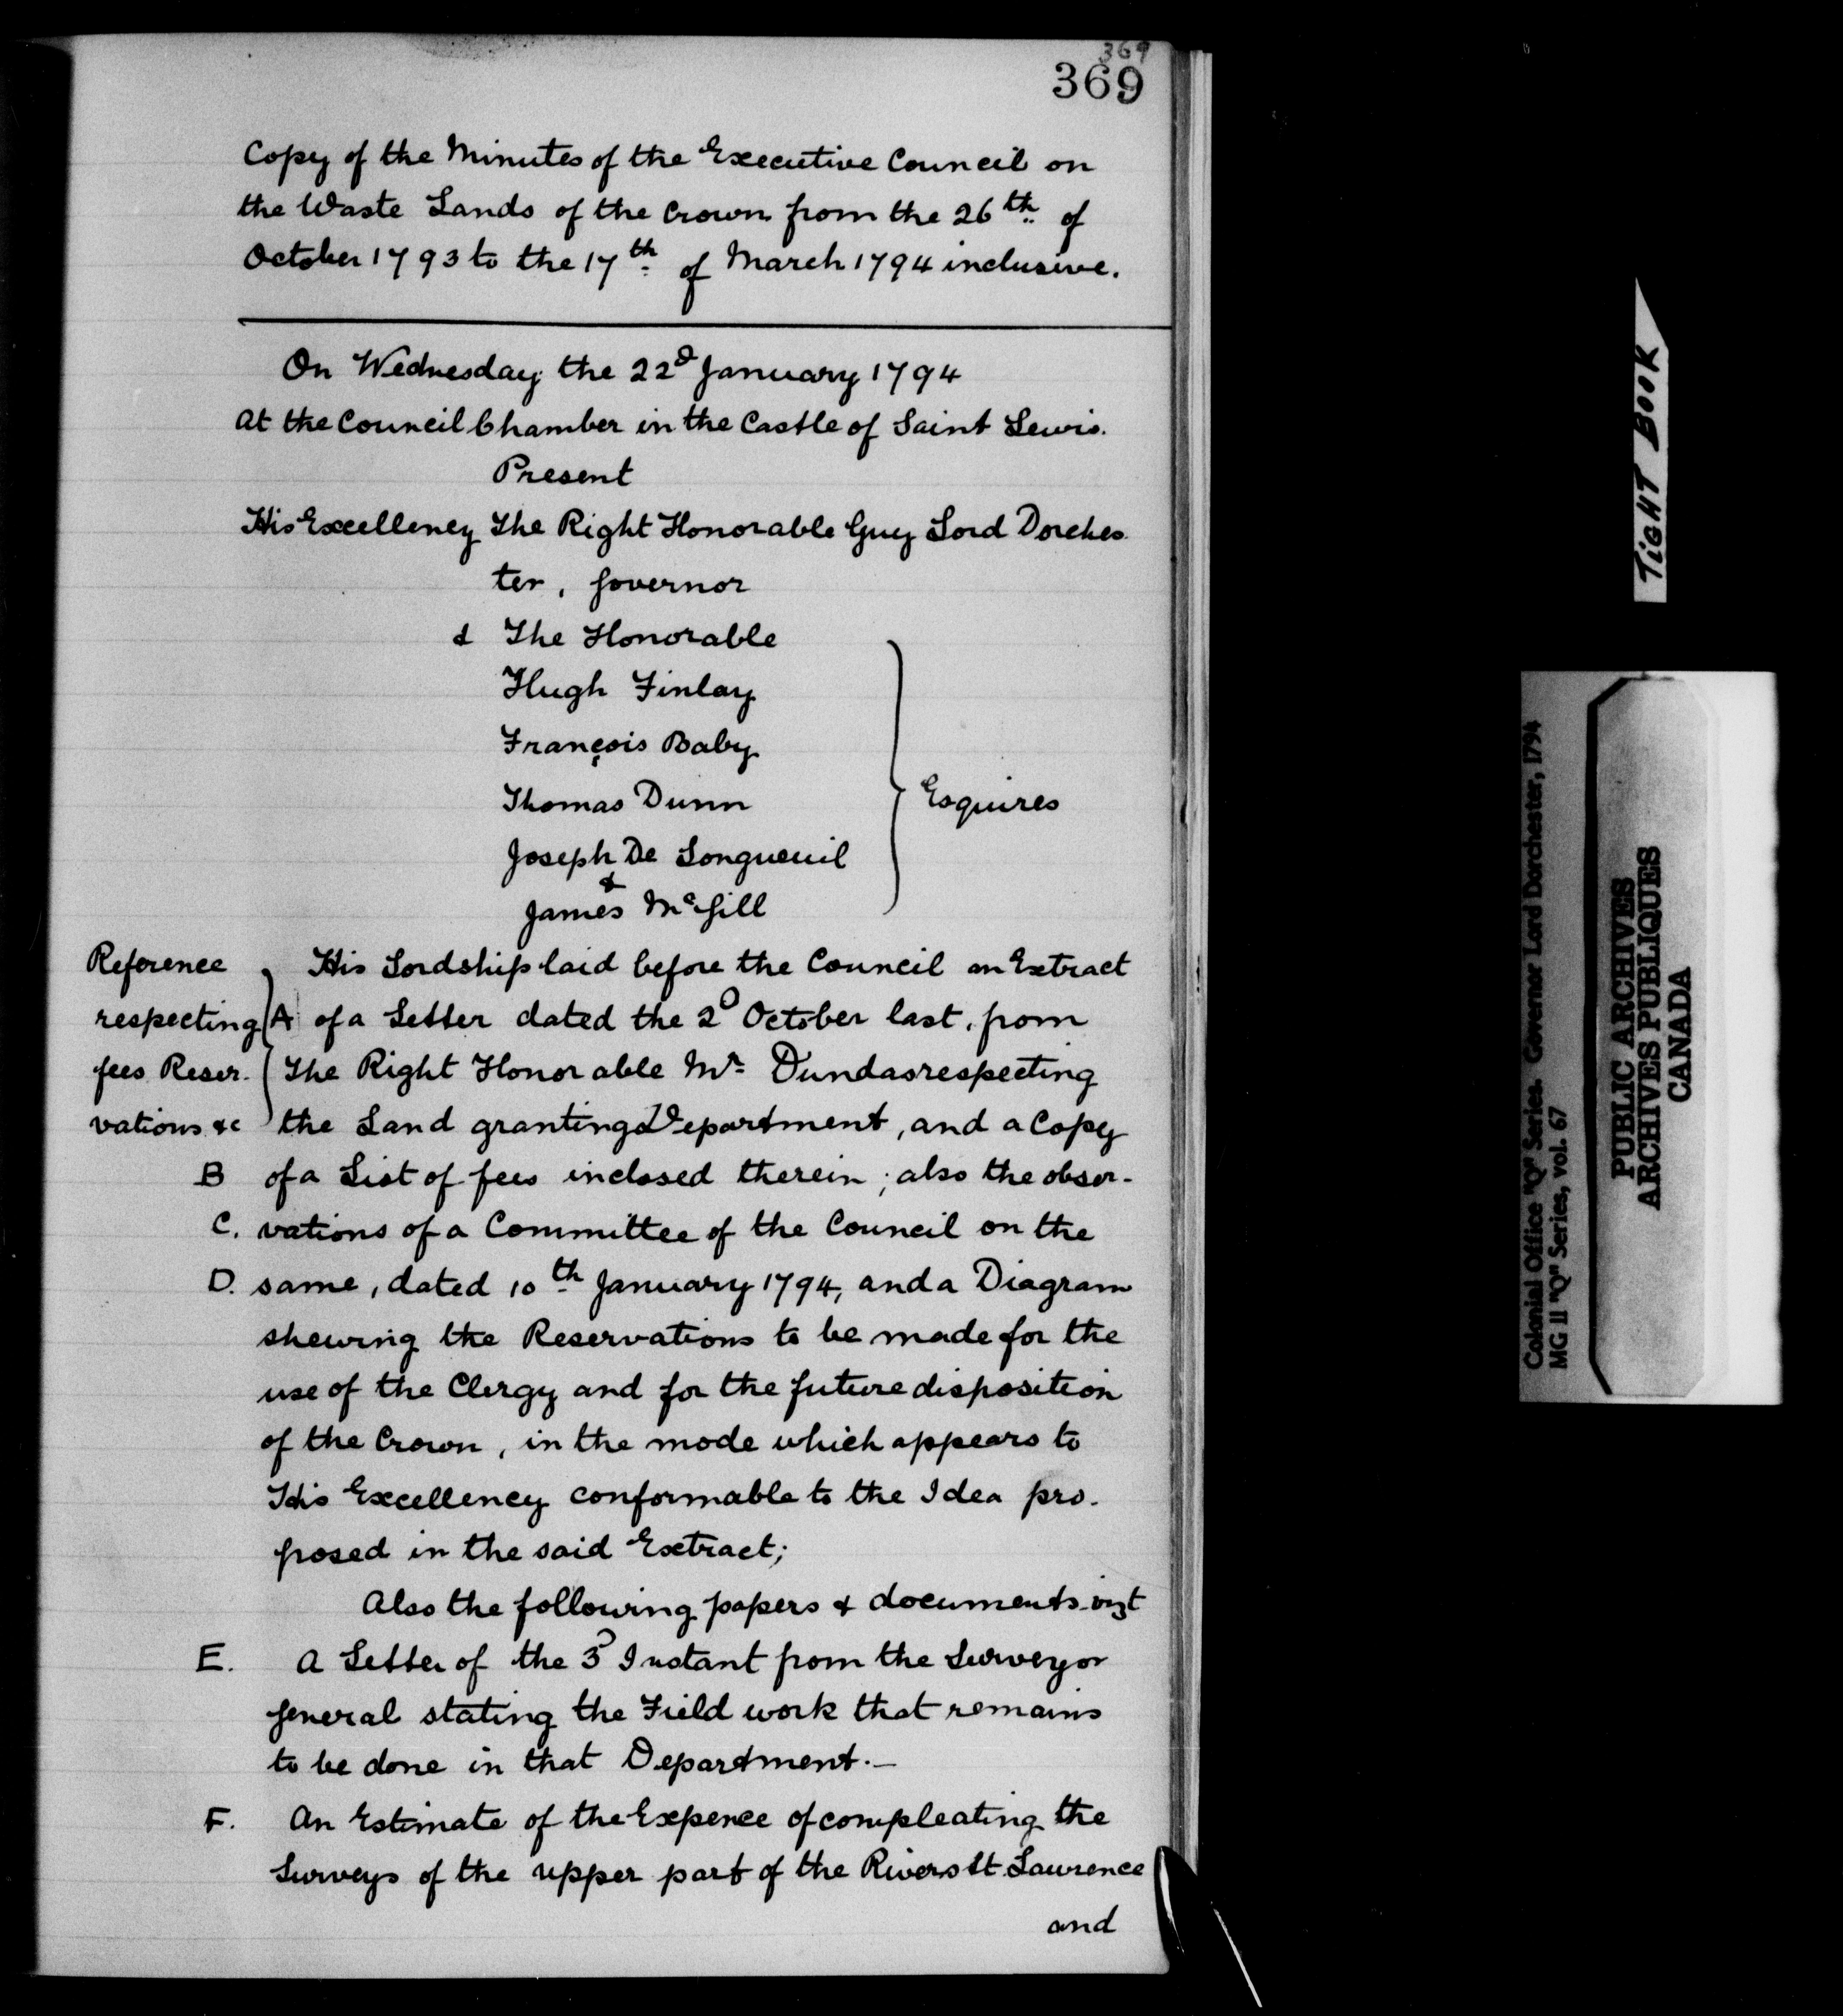 369
369
Copy of the Minutes of the Executive Council on
the Waste Lands of the Crown from the 26th of
October 1793 to the 17th of March 1794 inclusive.
On Wednesday the 22d January 1794
at the Council Chamber in the Castle of Saint Lewis.
Present
His Excellency The Right Honorable Guy Lord Dorches-
ter, Governor
& The Honorable
Hugh Finlay
François Baby
Thomas Dunn
Joseph De Longueuil
&
James McGill
Esquires
Reference
respecting
fees Reser-
vations &c
His Lordship laid before the Council an Extract
A of a Letter dated the 2d October last, from
The Right Honorable Mr Dundas respecting
the Land granting Department, and a Copy
B of a List of fees inclosed therein; also the obser-
C. vations of a Committee of the Council on the
D. same, dated 10th January 1794, and a Diagram
shewing the Reservations to be made for the
use of the Clergy and for the future disposition
of the Crown, in the mode which appears to
His Excellency conformable to the Idea pro-
posed in the said Extract;
Also the following papers & documents vizt
E. A Letter of the 3d Instant from the Surveyor
General stating the Field work that remains
to be done in that Department.—
F. An Estimate of the Expence of compleating the
Surveys of the upper part of the Rivers St Lawrence
and
TIGHT BOOK
Colonial Office "Q" Series. Governor Lord Dorchester, 1794
MG 11 "Q" Series, vol. 67
PUBLIC ARCHIVES
ARCHIVES PUBLIQUES
CANADA